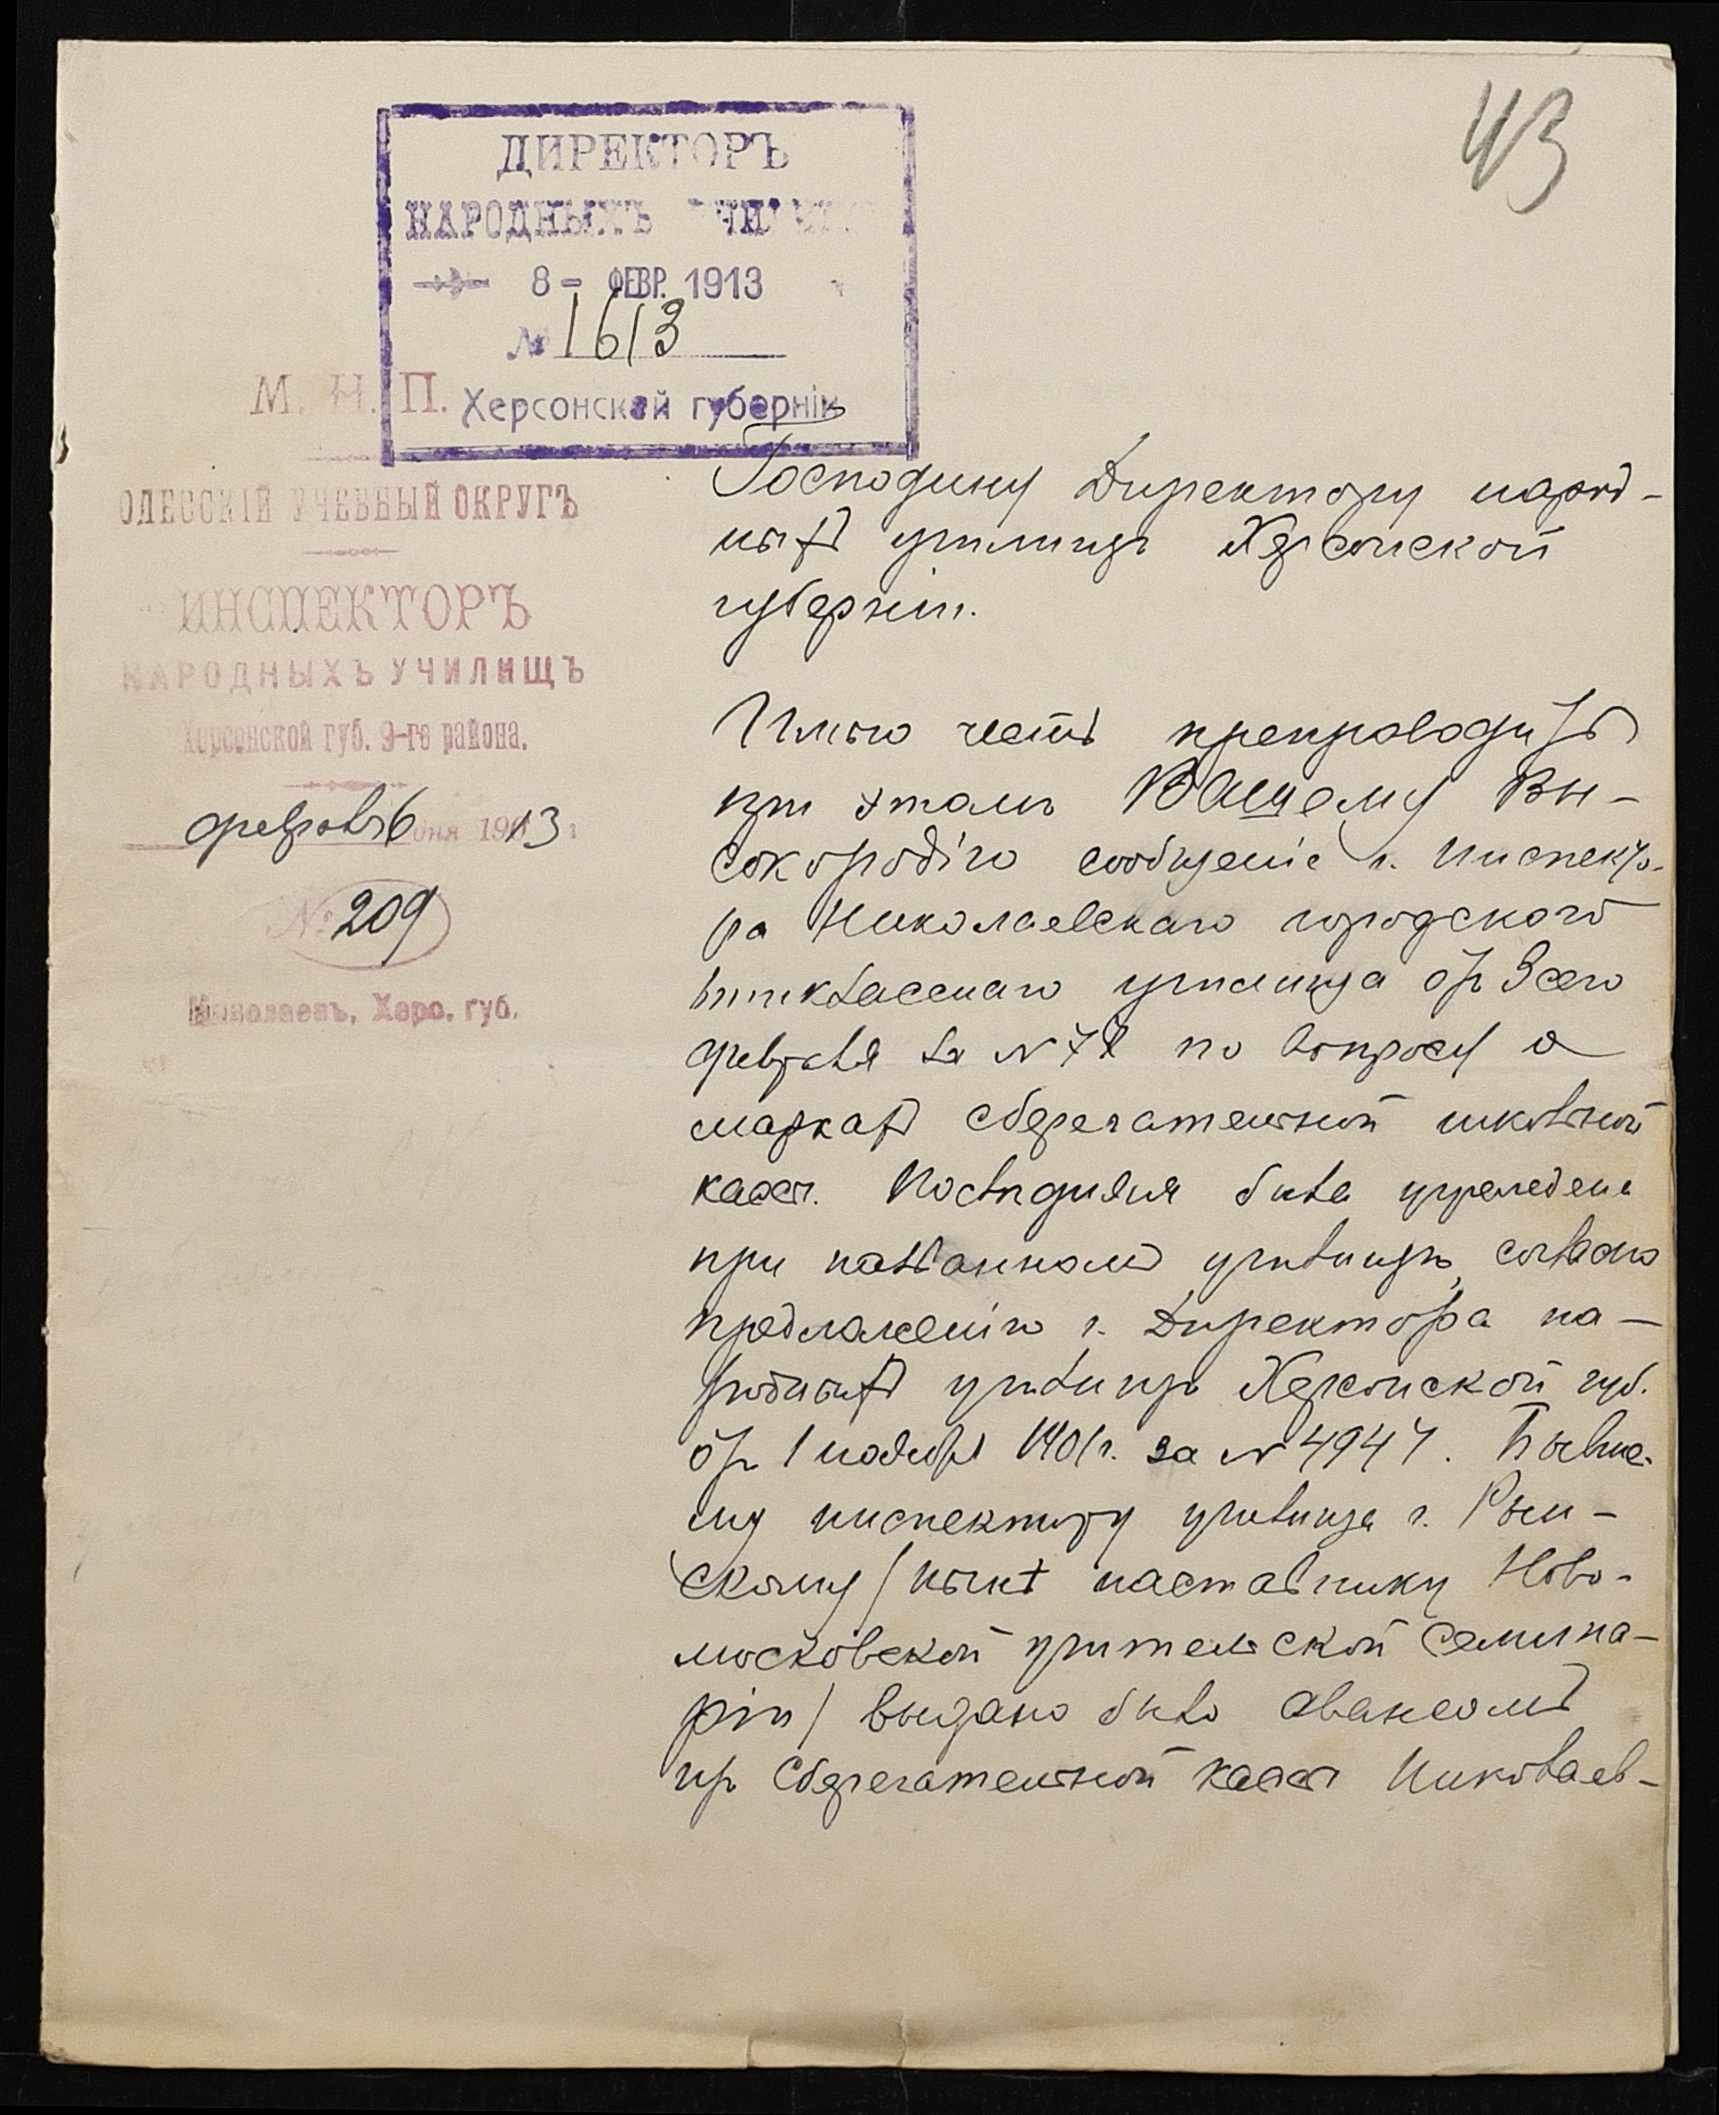 43
ДИРЕКТОРЪ
НАРОДНЫХЪ УЧИЛИЩЪ
8 - ФЕВР. 1913
№ 1613
Херсонской губерніи
М. Н. П.
ОДЕССКІЙ УЧЕБНЫЙ ОКРУГЪ
ИНСПЕКТОРЪ
НАРОДНЫХЪ УЧИЛИЩЪ
Херсонской губ. 9-го района.
февраля 6 дня 1913 г
№ 209
Николаевъ, Херс. губ.
Господину Директору народ-
ныхъ училищъ Херсонской
губерніи.
Имѣю честь препроводить
при этомъ Вашему Вы-
сокородію сообщеніе г. Инспекто-
ра Николаевскаго городского
училища отъ 3 сего
февраля за № по вопросу о
маркахъ сберегательной школьной
кассы. Послѣдняя была учреждена
при названномъ училищѣ, согласно
предложенію г. Директора на-
родныхъ училищъ Херсонской губ.
отъ 1 ноября 1901 г. за № 4947. Бывше-
му инспектору училища г.
скому / нынѣ наставнику Ново-
московской учительской семина-
ріи / выдано было авансомъ
изъ сберегательной кассы Николаев-